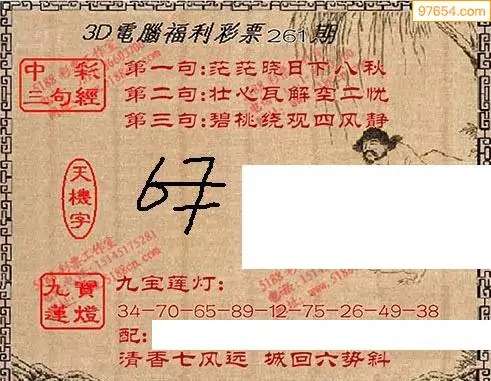 97654.com
3D電腦福利彩票261期
中彩
三句經
第一句:茫茫晓日下八秋
第二句:壮心瓦解空二忧
第三句:碧桃绕观四风静
天機字
67
九寶
蓮燈
九宝莲灯:
34-70-65-89-12-75-26-49-38
配:
清香七风远 城回六势斜